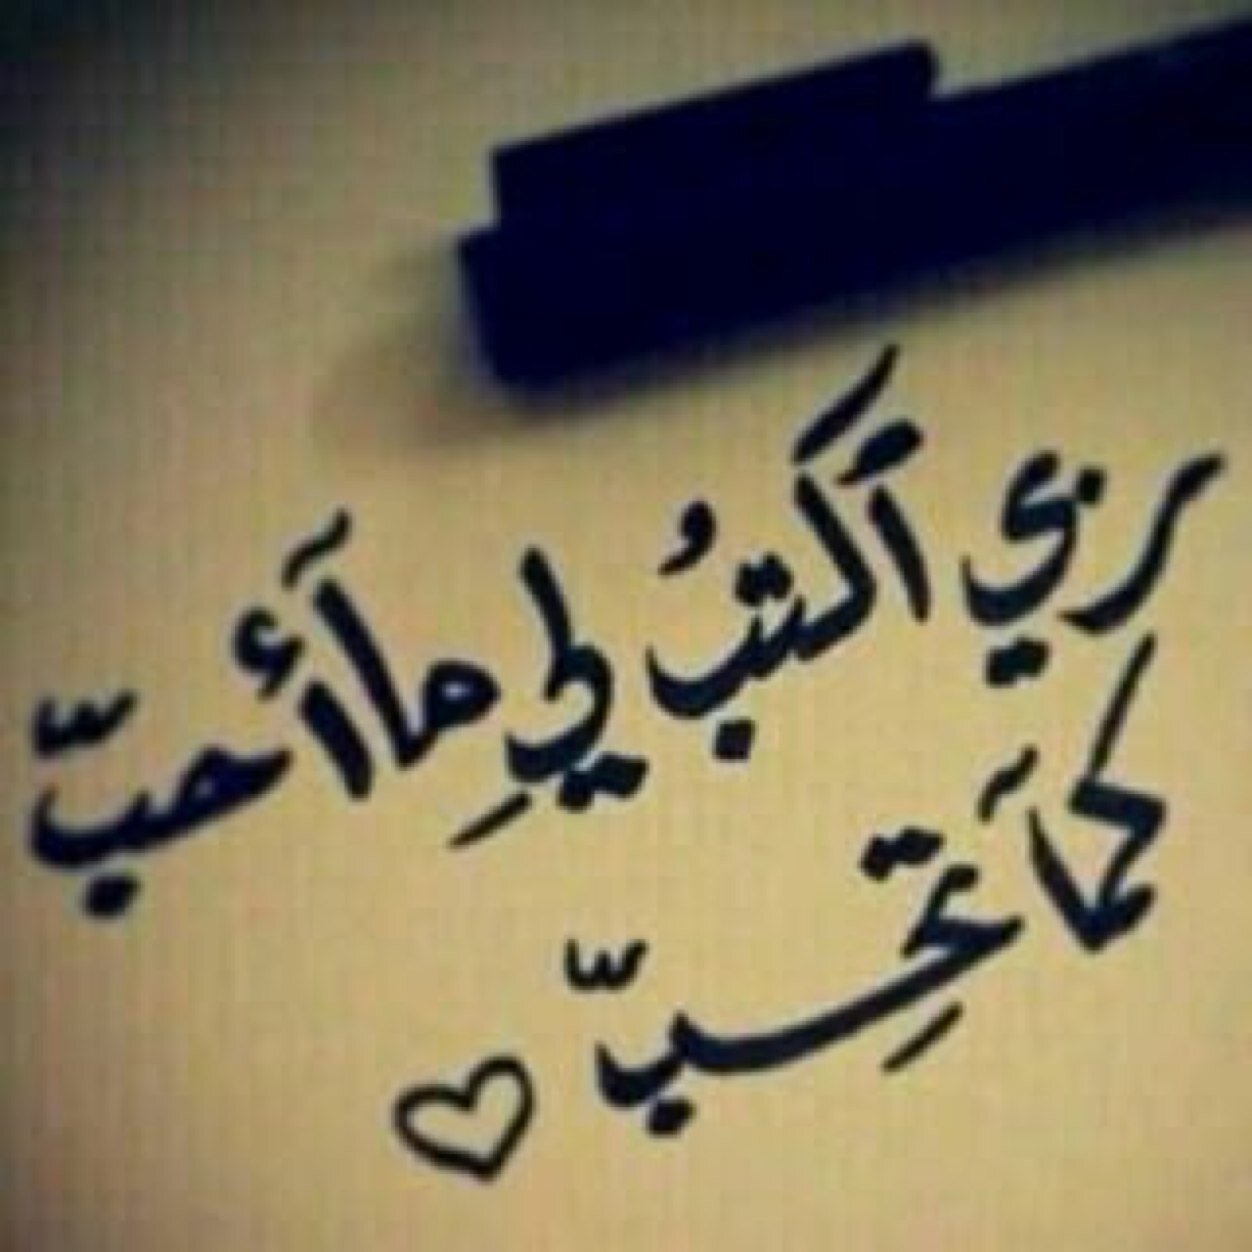 ربي أَكتبُ لي ِ مَا أُحبّ
كمَا تحِبّ